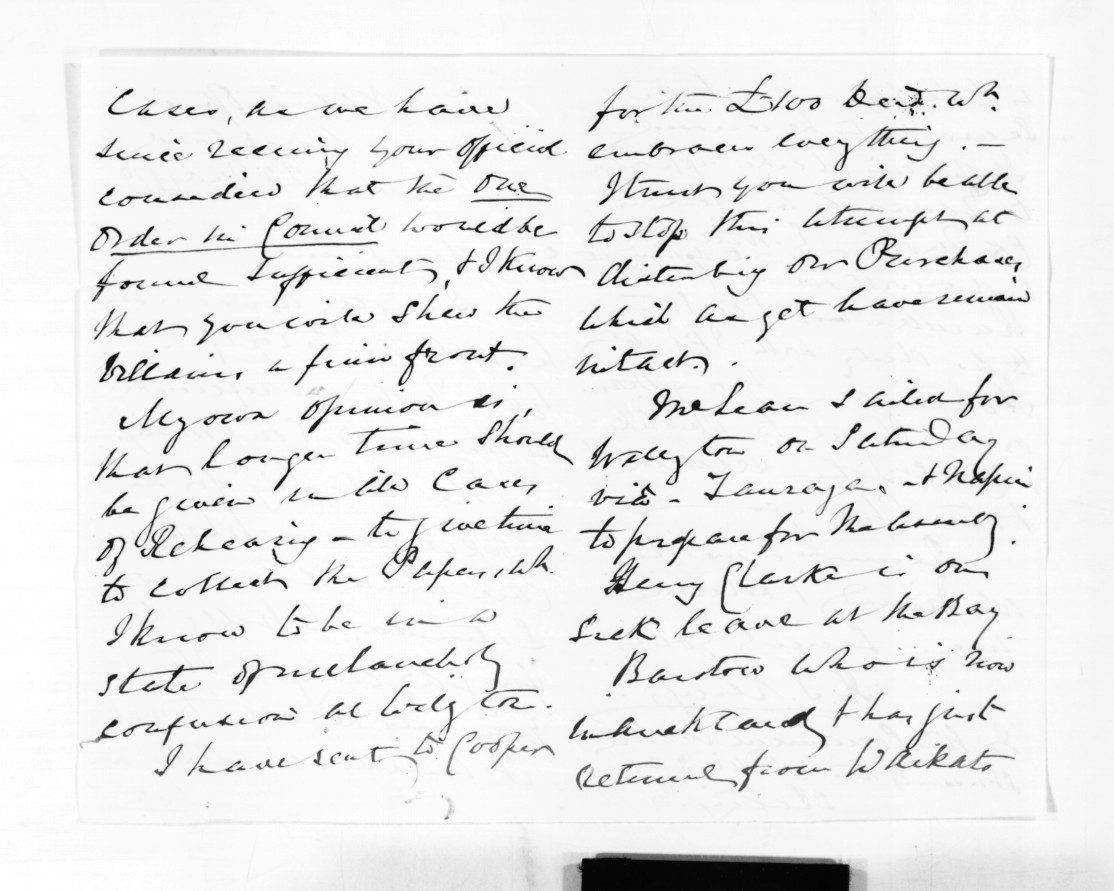 Cases, as we have
since receiving your official
considered that the One
Order in Council would be
found sufficient, & I know
that you will shew the
Villains a firm front.
My own opinion is,
that longer time should
be given in like Cases
of Rehearing – to give time
to collect the Papers, wh.
I know to be in a
state of melancholy
confusion at Welgton.
I have sent to Cooper
for the £100 Deed. Wh.
embraces everything. –
I trust you will be able
to stop this attempt at
disturbing our Purchases
which as yet have remain
intact.
McLean sailed for
Welgton on Saturday
viâ – Tauranga – & Napier
to prepare for the Assembly.
Henry Clarke is on
Sick leave at the Bay
Barstow who is now
in Auckland & has just
returned from Waikato